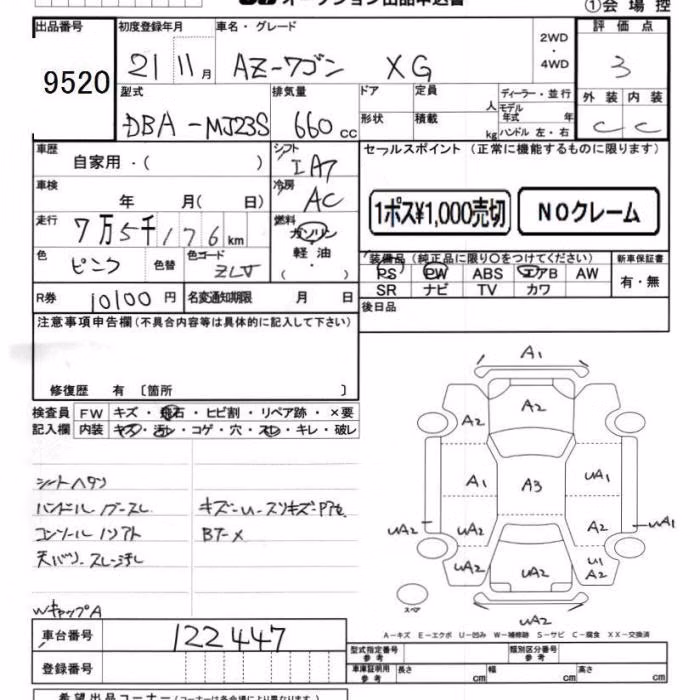 オークション出品申込書
①会場控
出品番号 初度登録年月 車名・グレード 2WD・4WD 評価点
9520 21 11月 AZ-ワゴン XG 3
型式 排気量 ドア 定員 人 ディーラー・並行 外装 内装
DBA-MJ23S 660cc 形状 積載 kg モデル年式 年 ハンドル 左・右 C C
車歴 自家用・( ) シフト IA7 セールスポイント (正常に機能するものに限ります)
車検 年 月( 日) 冷房 AC
1ポス¥1,000売切 NOクレーム
走行 7万5千176km 燃料 ガソリン
軽油
・( )
色 ピンク 色替 色コード ZLJ
装備品 (純正品に限り〇をつけてください) 新車保証書
PS PW ABS エアB AW 有・無
SR ナビ TV カワ
R券 10100円 名変通知期限 月 日 後日品
注意事項申告欄 (不具合内容等は具体的に記入して下さい)
修復歴 有 〔箇所 〕
検査員 FW キズ・飛石・ヒビ割・リペア跡・×要
記入欄 内装 キズ・汚レ・コゲ・穴・スレ・キレ・破レ
シートヘタリ
ハンドル
キズ-U-スリキズ-
コンソール
BT-X
天バリ
WキャップA
A1
A2
A2 A2
A1 A3 UA1
UA2 UA2 A2 UA1
UA2 UA2 U1 A2
スペア
UA2
A-キズ E-エクボ U-凹み W-補修跡 S-サビ C-腐食 XX-交換済
車台番号 122447
型式指定番号 参考 類別区分番号 参考
登録番号 車庫証明用 参考 長さ cm 幅 cm 高さ cm
希望出品コーナー (コーナーは各会場により異なります。)